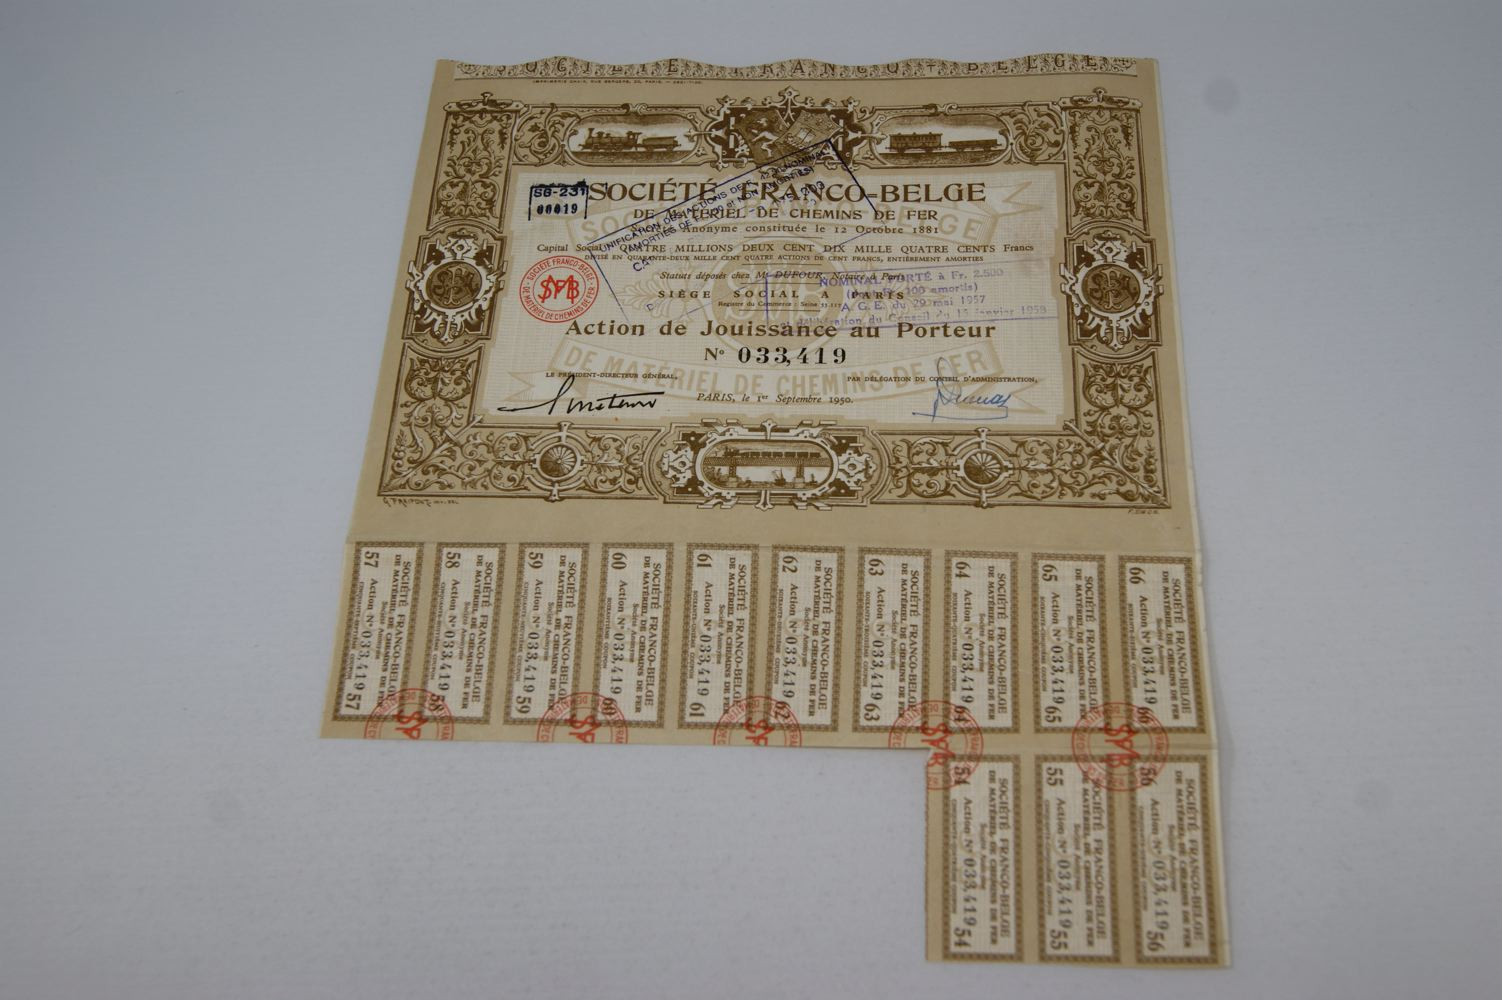 SOCIÉTÉ FRANCO-BELGE
SG-231
00019
SOCIÉTÉ FRANCO-BELGE
DE MATÉRIEL DE CHEMINS DE FER
Société Anonyme constituée le 12 Octobre 1881
Capital Social: QUATRE MILLIONS DEUX CENT DIX MILLE QUATRE CENTS Francs
DIVISÉ EN QUARANTE-DEUX MILLE CENT QUATRE ACTIONS DE CENT FRANCS, ENTIÈREMENT AMORTIES
Statuts déposés chez Me DUFOUR, Notaire à Paris
SIÈGE SOCIAL A PARIS
Registre du Commerce: Seine
NOMINAL PORTÉ à Fr. 2.500
(dont Fr. 100 amortis)
A.G.E. du 29 mai 1957
Délibération du Conseil du 15 janvier 1958
SOCIÉTÉ FRANCO-BELGE
DE MATÉRIEL DE CHEMINS DE FER
SFMB
Action de Jouissance au Porteur
No 033,419
DE MATÉRIEL DE CHEMINS DE FER
LE PRÉSIDENT-DIRECTEUR GÉNÉRAL,
PAR DÉLÉGATION DU CONSEIL D'ADMINISTRATION,
PARIS, le 1er Septembre 1950.
57 SOCIÉTÉ FRANCO-BELGE
DE MATÉRIEL DE CHEMINS DE FER
Société Anonyme
Action No 033,419 57
CINQUANTE-SEPTIÈME COUPON
58 SOCIÉTÉ FRANCO-BELGE
DE MATÉRIEL DE CHEMINS DE FER
Société Anonyme
Action No 033,419 58
CINQUANTE-HUITIÈME COUPON
59 SOCIÉTÉ FRANCO-BELGE
DE MATÉRIEL DE CHEMINS DE FER
Société Anonyme
Action No 033,419 59
CINQUANTE-NEUVIÈME COUPON
60 SOCIÉTÉ FRANCO-BELGE
DE MATÉRIEL DE CHEMINS DE FER
Société Anonyme
Action No 033,419 60
SOIXANTIÈME COUPON
61 SOCIÉTÉ FRANCO-BELGE
DE MATÉRIEL DE CHEMINS DE FER
Société Anonyme
Action No 033,419 61
SOIXANTE-UNIÈME COUPON
62 SOCIÉTÉ FRANCO-BELGE
DE MATÉRIEL DE CHEMINS DE FER
Société Anonyme
Action No 033,419 62
SOIXANTE-DEUXIÈME COUPON
63 SOCIÉTÉ FRANCO-BELGE
DE MATÉRIEL DE CHEMINS DE FER
Société Anonyme
Action No 033,419 63
SOIXANTE-TROISIÈME COUPON
64 SOCIÉTÉ FRANCO-BELGE
DE MATÉRIEL DE CHEMINS DE FER
Société Anonyme
Action No 033,419 64
SOIXANTE-QUATRIÈME COUPON
65 SOCIÉTÉ FRANCO-BELGE
DE MATÉRIEL DE CHEMINS DE FER
Société Anonyme
Action No 033,419 65
SOIXANTE-CINQUIÈME COUPON
66 SOCIÉTÉ FRANCO-BELGE
DE MATÉRIEL DE CHEMINS DE FER
Société Anonyme
Action No 033,419 66
SOIXANTE-SIXIÈME COUPON
54 SOCIÉTÉ FRANCO-BELGE
DE MATÉRIEL DE CHEMINS DE FER
Société Anonyme
Action No 033,419 54
CINQUANTE-QUATRIÈME COUPON
55 SOCIÉTÉ FRANCO-BELGE
DE MATÉRIEL DE CHEMINS DE FER
Société Anonyme
Action No 033,419 55
CINQUANTE-CINQUIÈME COUPON
56 SOCIÉTÉ FRANCO-BELGE
DE MATÉRIEL DE CHEMINS DE FER
Société Anonyme
Action No 033,419 56
CINQUANTE-SIXIÈME COUPON